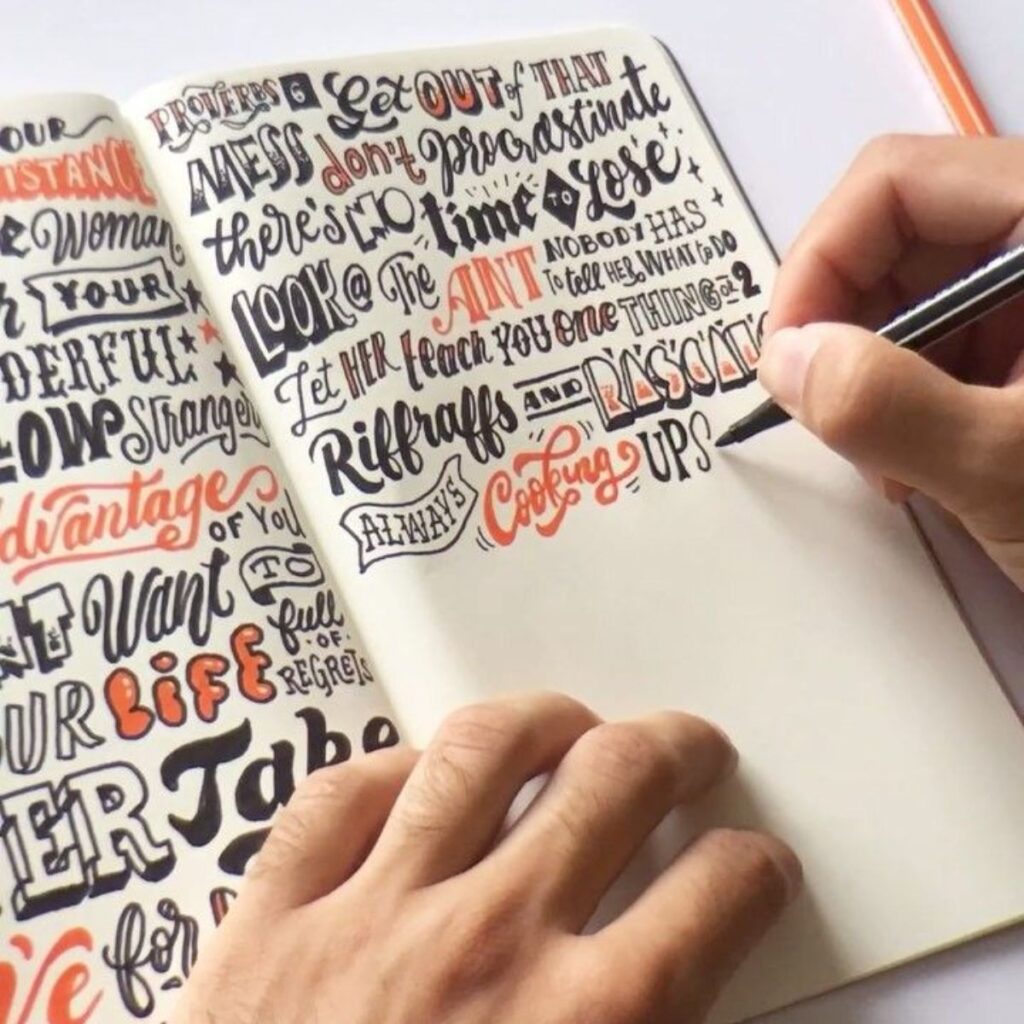 OUR
ISTANCE
e Woman
YOUR
DERFUL
LOW Stranger
dvantage OF YOU
Want TO
UR LiFE full OF REGRETS
ER Take
Ve for
PROVERBS 6 Get OUT of THAT
MESS don't procrastinate
there's NO time TO Lose
LOOK @ The ANT NOBODY HAS To tell HER WHAT to DO
Let HER teach YOU one THING OR 2
Riffraffs AND RASCALS
ALWAYS Cooking UPS